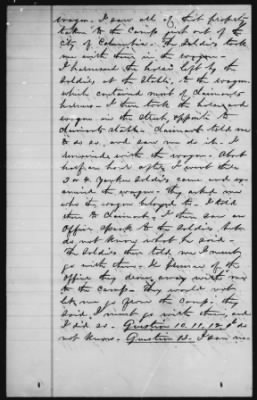 wagon. I saw all of this property
taken to the camp just out of the
city of Columbia. The soldiers took
me with them in the wagon.
I harnessed the horse left by the
soldiers, at the stable, to the wagon
which contained most of claimants
harness. I then took the horse and
wagon in the street opposite to
claimants stable. Claimant told me
to do so, and saw me do it. I
remained with the wagon. About
half an hour after I went there
3 or 4 Yankee soldiers came and ex-
amined the wagon. They asked me
who the wagon belonged to. I told
them to claimant. I then saw an
officer speak to the soldiers but
do not know what he said.
The soldiers then told me I must
go with them. In presence of the
officer they drove away with me
to the camp. They would not
let me go from the camp; they
said I must go with them, and
I did so. Question 10. 11. 12. I do
not know. Question 13. I saw no